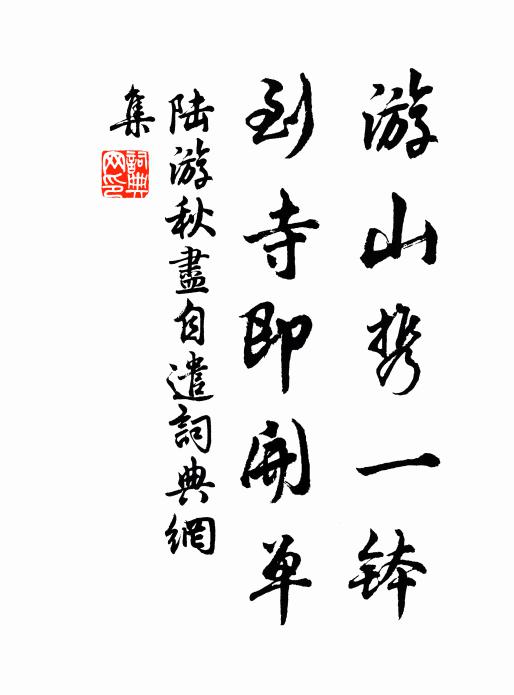 游山携一钵
到寺即開单
陆游秋盡自遣詞典網
集
詞典
网印